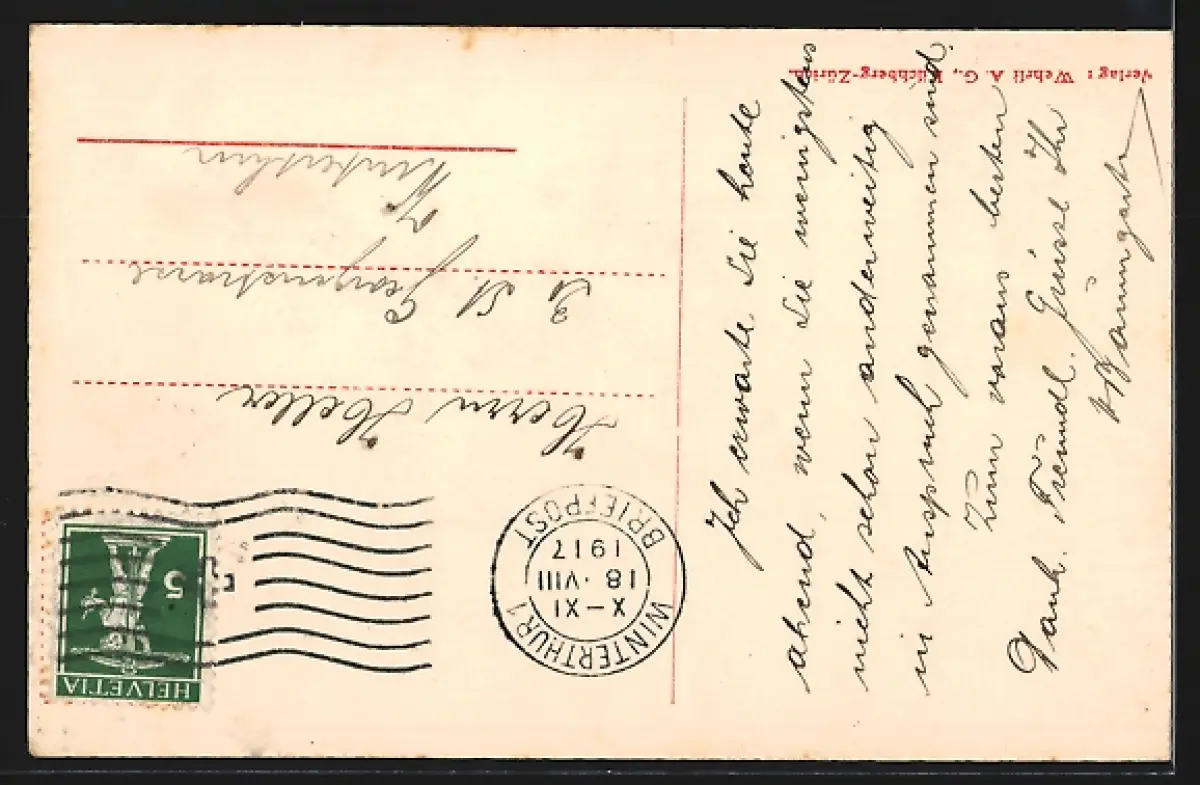 Verlag: Wehrli A. G., Kilchberg-Zürich.
Ich erwarte Sie heute
abend, wenn Sie wenigstens
nicht schon anderweitig
in Anspruch genommen sind.
Zum voraus besten
Dank. Freundl. Grüsse Ihr
Baumgartner
WINTERTHUR 1
X–XI
18·VIII
1917
BRIEFPOST
HELVETIA
5
Herrn Heller
St Georgenstrasse
Winterthur